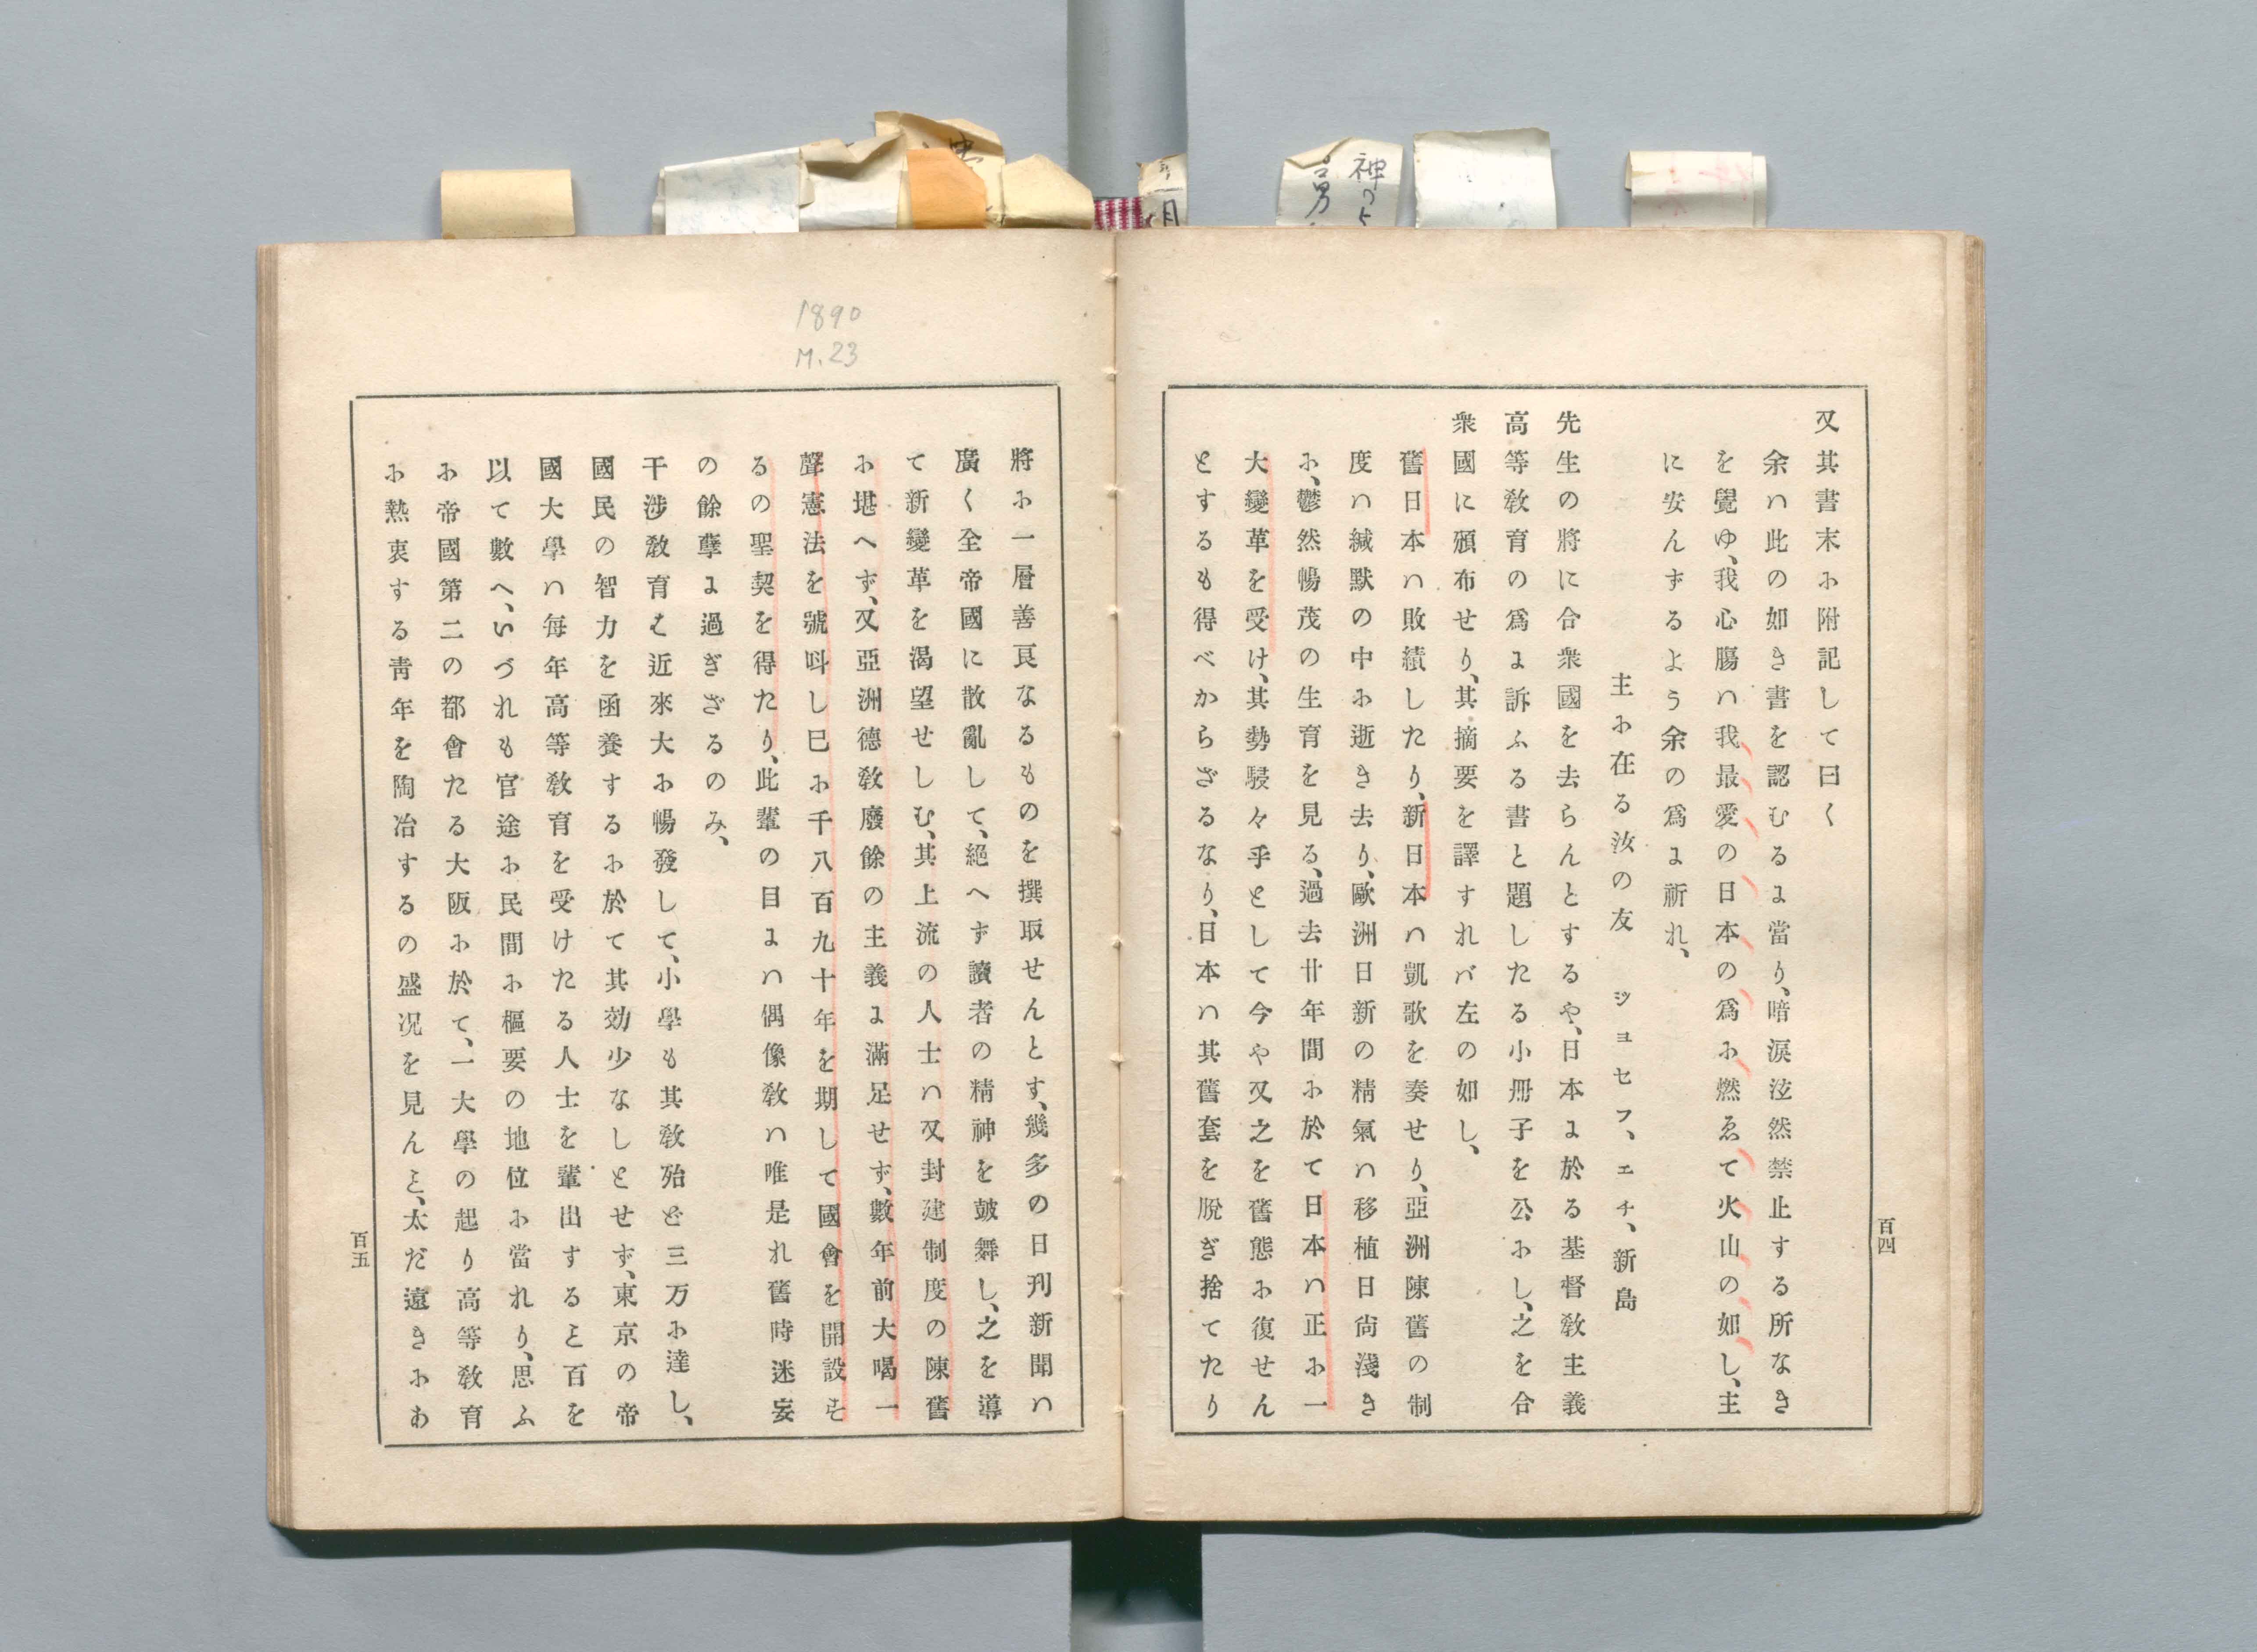 又其書末に附記して曰く
余ハ此の如き書を認むるに當り、暗涙泫然禁止する所なき
を覺ゆ、我心膓ハ我最愛の日本の爲に燃ゑて火山の如し、主
に安んずるよう余の爲に祈れ、
主に在る汝の友 ジョセフ、エチ、新島
先生の將に合衆國を去らんとするや、日本に於る基督敎主義
高等敎育の爲に訴ふる書と題したる小冊子を公にし、之を合
衆國に頒布せり、其摘要を譯すれバ左の如し、
舊日本ハ敗績したり、新日本ハ凱歌を奏せり、亞洲陳舊の制
度ハ緘默の中に逝き去り、歐洲日新の精氣ハ移植日尙淺き
に、鬱然暢茂の生育を見る、過去廿年間に於て日本ハ正に一
大變革を受け、其勢駸々乎として今や又之を舊態に復せん
とするも得べからざるなり、日本ハ其舊套を脫ぎ捨てたり
百四
1890
M.23
將に一層善良なるものを撰取せんとす、幾多の日刋新聞ハ
廣く全帝國に散亂して、絕へず讀者の精神を皷舞し、之を導
て新變革を渴望せしむ、其上流の人士ハ又封建制度の陳舊
に堪へず、又亞洲德敎廢餘の主義に滿足せず、數年前大喝一
聲憲法を號呌し巳に千八百九十年を期して國會を開設す
るの聖契を得たり、此輩の目にハ偶像敎ハ唯是れ舊時迷妄
の餘孽に過ぎざるのみ、
干涉敎育も近來大に暢發して、小學も其敎殆ど三万に達し、
國民の智力を函養するに於て其効少なしとせず、東京の帝
國大學ハ每年高等敎育を受けたる人士を輩出すると百を
以て數へ、いづれも官途に民間に樞要の地位に當れり、思ふ
に帝國第二の都會たる大阪に於て、一大學の起り高等敎育
に熱衷する靑年を陶冶するの盛况を見んと、太だ遠きにあ
百五
神の